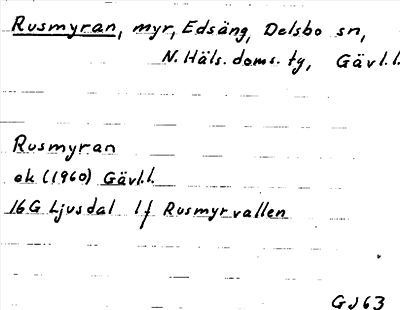 Rusmyran, myr, Edsäng, Delsbo sn,
N. Häls. doms. tg, Gävl.l.
Rusmyran
ek (1960) Gävl.l.
16G Ljusdal lf Rusmyrvallen
GJ63